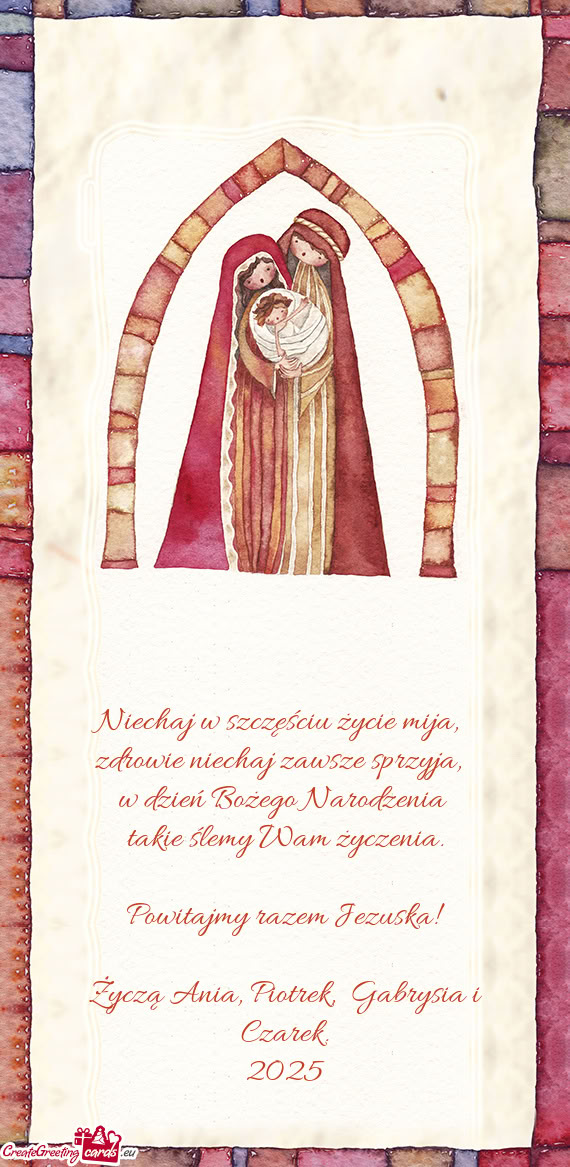 Niechaj w szczęściu życie mija,
zdrowie niechaj zawsze sprzyja,
w dzień Bożego Narodzenia
takie ślemy Wam życzenia.
Powitajmy razem Jezuska!
Życzą Ania, Piotrek, Gabrysia i
Czarek.
2025
CreateGreeting cards .eu